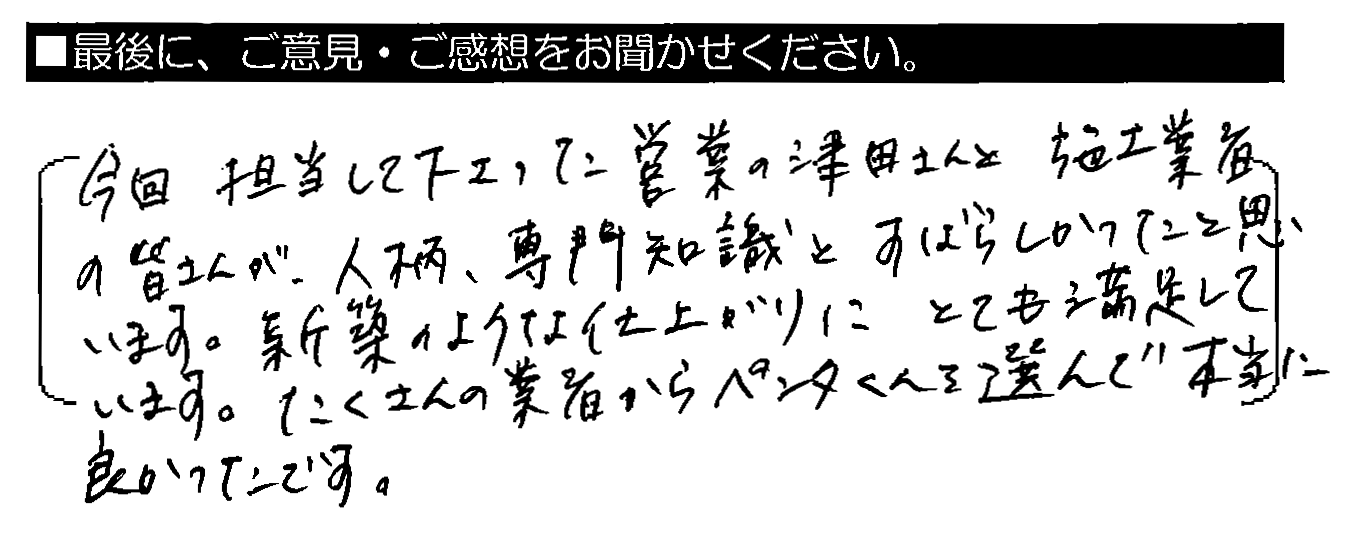 ■最後に、ご意見・ご感想をお聞かせください。
今回 担当して下さった営業の津田さんと 施工業者
の皆さんが、人柄、専門知識と すばらしかったと思い
います。新築のような仕上がりに とても満足して
います。たくさんの業者からペンタくんを選んで本当に
良かったです。